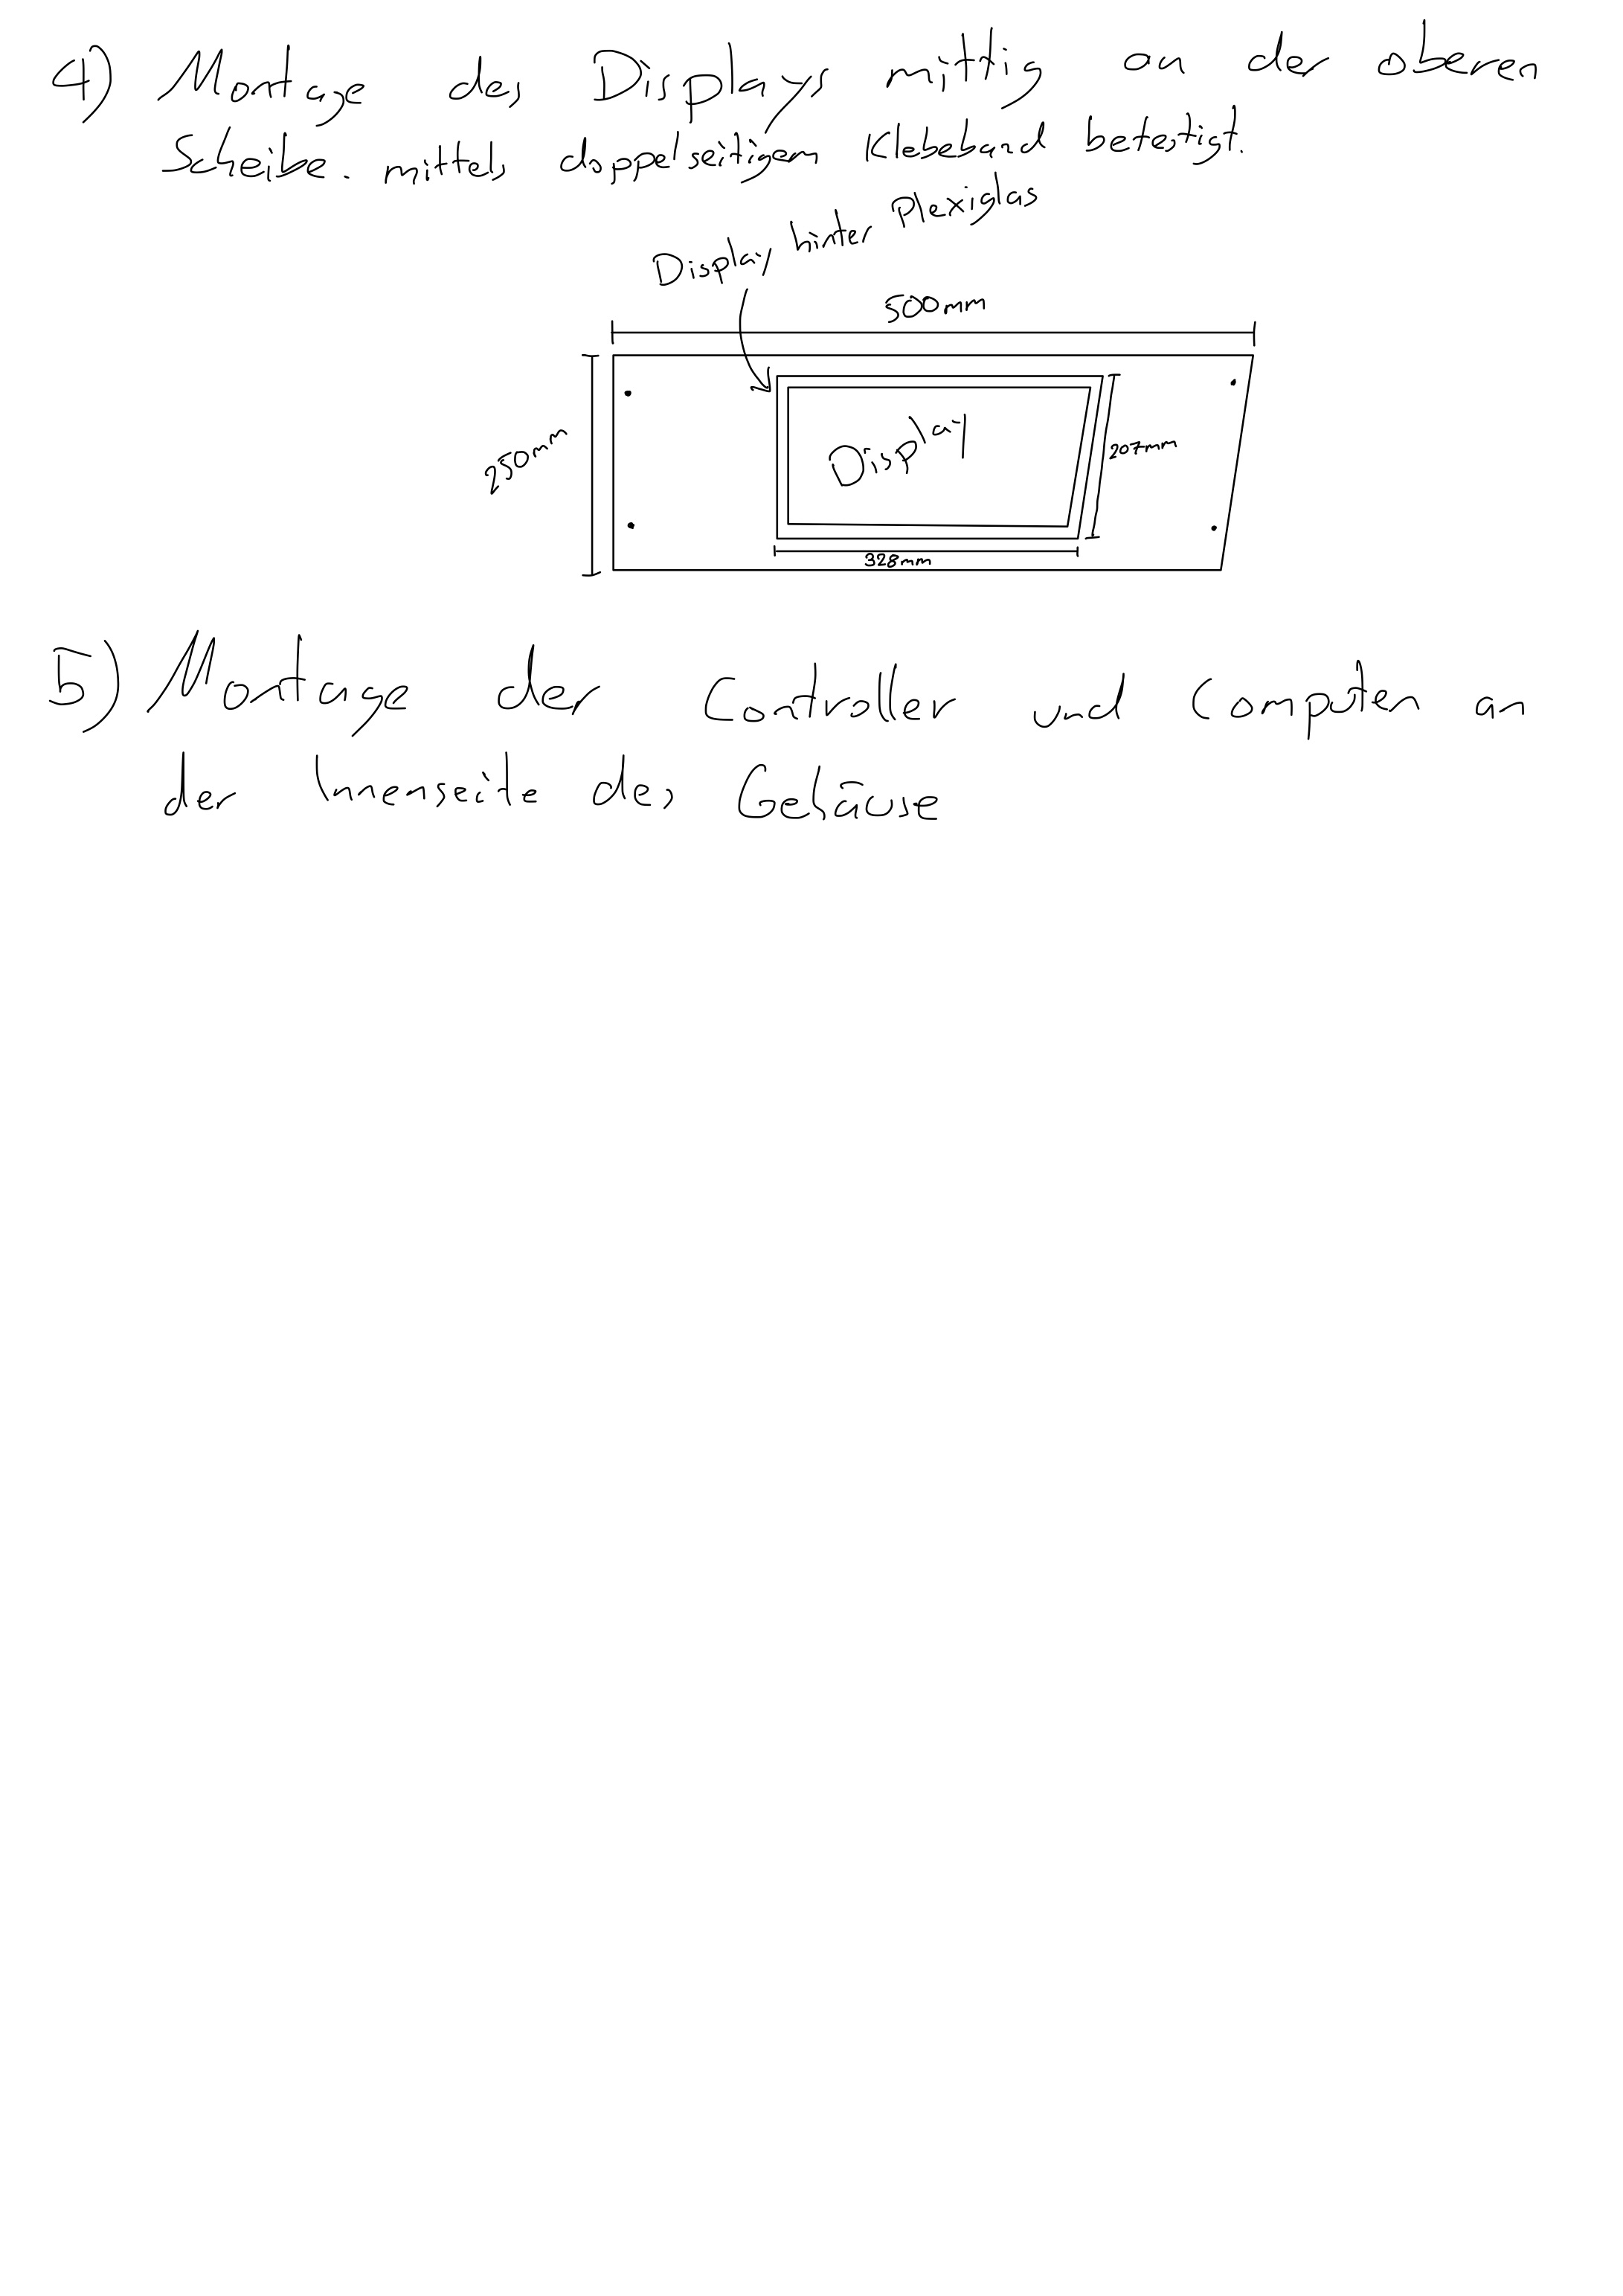 4) Montage des Displays mittig an der oberen
Scheibe. mittels doppelseitigem Klebeband befestigt.
Display hinter Plexiglas
500mm
250mm
Display
207mm
328mm
5) Montage der Controller und Computer an
der Innenseite des Gehäuse